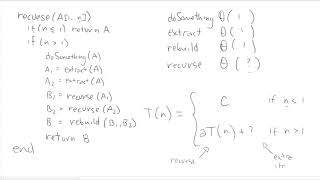 recurse(A[1..n])
if(n ≤ 1) return A
if(n > 1)
doSomething(A)
A₁ = extract(A)
A₂ = extract(A)
B₁ = recurse(A₁)
B₂ = recurse(A₂)
B = rebuild(B₁,B₂)
return B
end
doSomething Θ(1)
extract Θ(1)
rebuild Θ(1)
recurse Θ(?)
T(n) = { C if n ≤ 1
2T(n) + ? if n > 1
recurse
extra